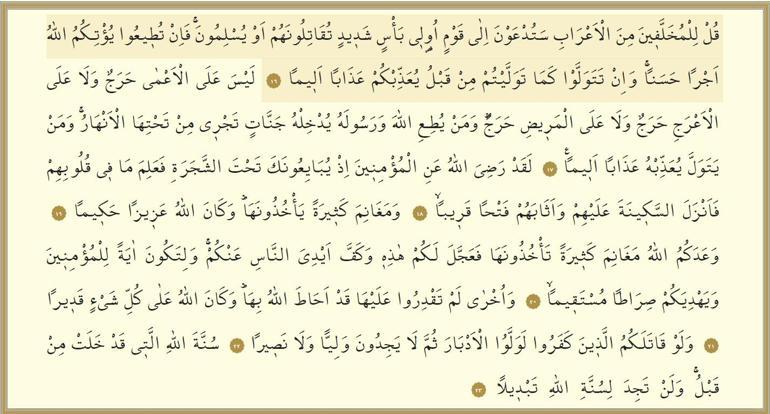 قُلْ لِلْمُخَلَّفٖينَ مِنَ الْاَعْرَابِ سَتُدْعَوْنَ اِلٰى قَوْمٍ اُو۬لٖى بَأْسٍ شَدٖيدٍ تُقَاتِلُونَهُمْ اَوْ يُسْلِمُونَۚ فَاِنْ تُطٖيعُوا يُؤْتِكُمُ اللّٰهُ
اَجْرًا حَسَنًاۚ وَاِنْ تَتَوَلَّوْا كَمَا تَوَلَّيْتُمْ مِنْ قَبْلُ يُعَذِّبْكُمْ عَذَابًا اَلٖيمًا ﴿١٦﴾ لَيْسَ عَلَى الْاَعْمٰى حَرَجٌ وَلَا عَلَى
الْاَعْرَجِ حَرَجٌ وَلَا عَلَى الْمَرٖيضِ حَرَجٌؕ وَمَنْ يُطِعِ اللّٰهَ وَرَسُولَهُ يُدْخِلْهُ جَنَّاتٍ تَجْرٖى مِنْ تَحْتِهَا الْاَنْهَارُۚ وَمَنْ
يَتَوَلَّ يُعَذِّبْهُ عَذَابًا اَلٖيمًاۚ ﴿١٧﴾ لَقَدْ رَضِىَ اللّٰهُ عَنِ الْمُؤْمِنٖينَ اِذْ يُبَايِعُونَكَ تَحْتَ الشَّجَرَةِ فَعَلِمَ مَا فٖى قُلُوبِهِمْ
فَاَنْزَلَ السَّكٖينَةَ عَلَيْهِمْ وَاَثَابَهُمْ فَتْحًا قَرٖيبًاۙ ﴿١٨﴾ وَمَغَانِمَ كَثٖيرَةً يَأْخُذُونَهَاؕ وَكَانَ اللّٰهُ عَزٖيزًا حَكٖيمًا ﴿١٩﴾
وَعَدَكُمُ اللّٰهُ مَغَانِمَ كَثٖيرَةً تَأْخُذُونَهَا فَعَجَّلَ لَكُمْ هٰذِهٖ وَكَفَّ اَيْدِىَ النَّاسِ عَنْكُمْۚ وَلِتَكُونَ اٰيَةً لِلْمُؤْمِنٖينَ
وَيَهْدِيَكُمْ صِرَاطًا مُسْتَقٖيمًاۙ ﴿٢٠﴾ وَاُخْرٰى لَمْ تَقْدِرُوا عَلَيْهَا قَدْ اَحَاطَ اللّٰهُ بِهَاؕ وَكَانَ اللّٰهُ عَلٰى كُلِّ شَىْءٍ قَدٖيرًا
﴿٢١﴾ وَلَوْ قَاتَلَكُمُ الَّذٖينَ كَفَرُوا لَوَلَّوُا الْاَدْبَارَ ثُمَّ لَا يَجِدُونَ وَلِيًّا وَلَا نَصٖيرًا ﴿٢٢﴾ سُنَّةَ اللّٰهِ الَّتٖى قَدْ خَلَتْ مِنْ
قَبْلُۚ وَلَنْ تَجِدَ لِسُنَّةِ اللّٰهِ تَبْدٖيلًا ﴿٢٣﴾